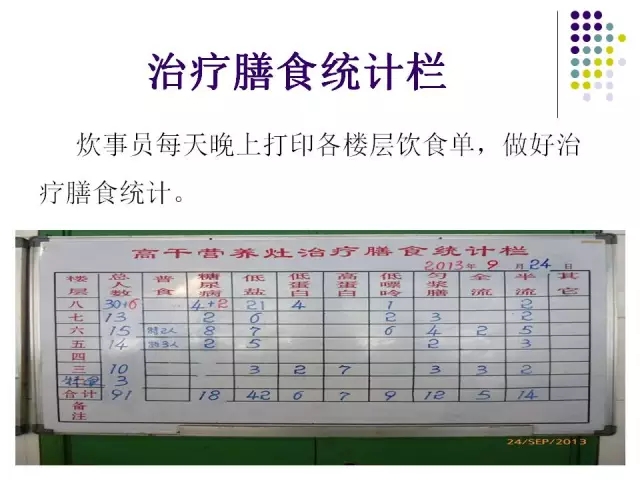 治疗膳食统计栏
炊事员每天晚上打印各楼层饮食单，做好治
疗膳食统计。
高干营养灶治疗膳食统计栏
2013年 9 月 24 日
楼层 总人数 普食 糖尿病 低盐 低蛋白 高蛋白 低嘌呤 匀浆膳 全流 半流 其它
八 30+6 4+2 21 4 1 2
七 13 2 6 2 3 2
六 15 8 7 6 4 2 5
五 14 2 5 2 3
四
三 10 3 2 7 3 3 2
3
合计 91 18 42 6 7 9 12 5 14
备注
24/SEP/2013